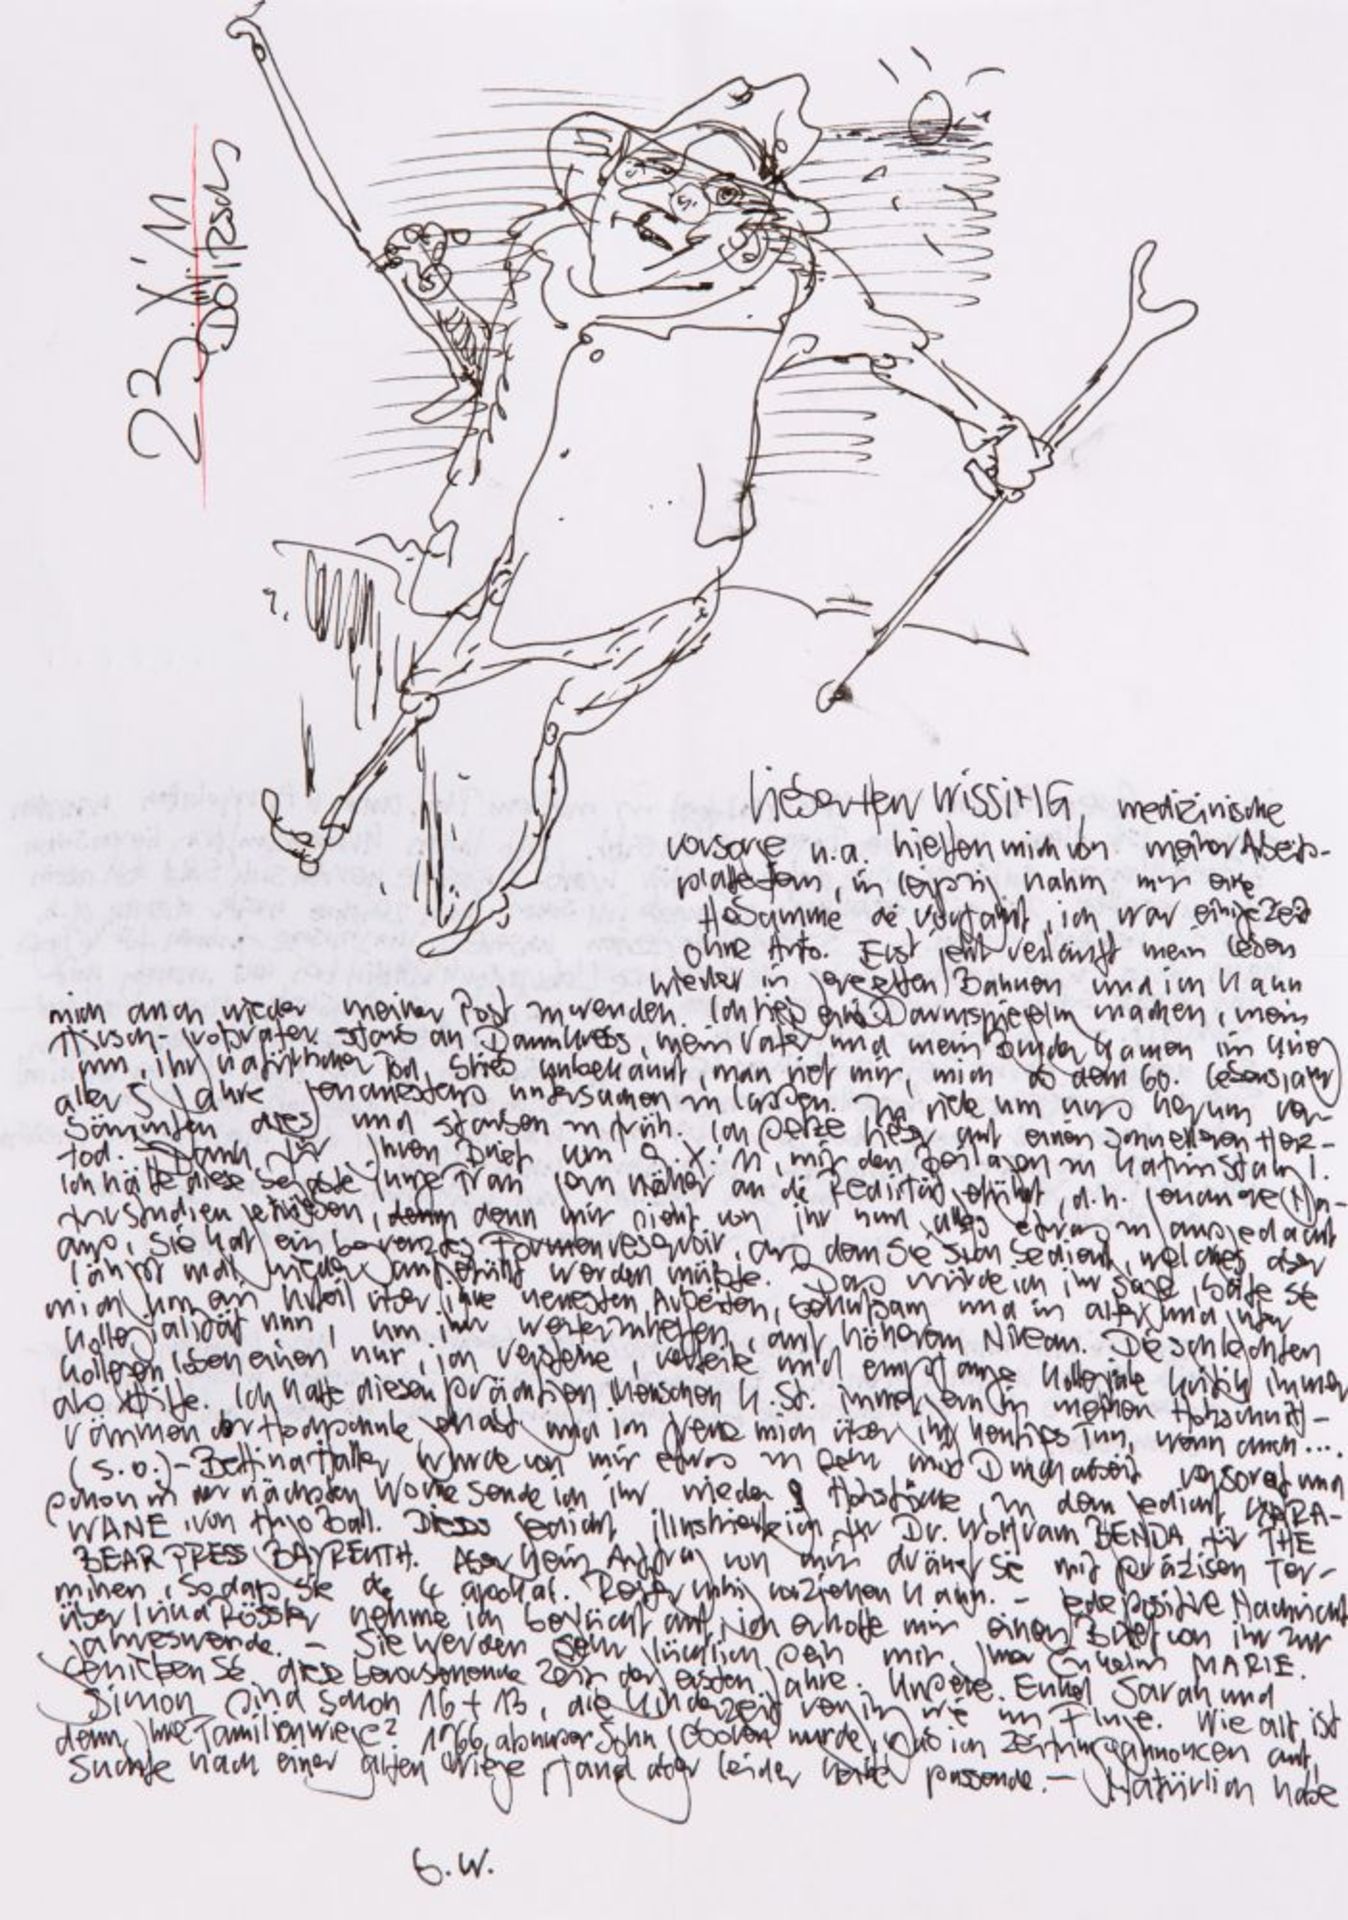 23. X. 11
Dölitzsch
Lieber Herr WISSING, medizinische
vorsorge u.a. hielten mich von meiner Arbeits-
plattform, in Leipzig nahm mir eine
Hebamme die Vorfahrt, ich war einige Zeit
ohne Auto. Erst jetzt verläuft mein Leben
wieder in geregelten Bahnen und ich kann
mich auch wieder meiner Post zuwenden. Ich ließ eine Darmspiegelung machen, mein
Großvater starb an Darmkrebs, mein Vater und mein Bruder kamen im Krieg
um, ihr natürlicher Tod blieb unbekannt, man riet mir, mich ab dem 60. Lebensjahr
aller 5 Jahre untersuchen zu lassen. Zu viele um uns herum ver-
säumten dies und starben zu früh. Ich setze lieber auf einen schnelleren Herz-
tod. Dann Ihren Brief vom 9. X. 11, mit den Beilagen
ich hätte diese begabte junge Frau gern näher an die Realität geführt, d.h. genauere Na-
turstudien betrieben, denn mir sieht von ihr nun alles etwas zu ausgedacht
aus, sie hat ein begrenztes Formenreservoir, aus dem sie sich bedient, welches aber
längst mal wieder aufgefüllt werden müßte. Das würde ich ihr sagen, bäte sie
mich um ein Urteil über ihre neuesten Arbeiten, behutsam und in alter und
Kollegialität nun, um ihr weiterzuhelfen, auf höherem Niveau. Die schlechten
Kollegen loben einen nur, ich verstehe, verteile und empfange kollegiale Kritik immer
als Hilfe. Ich habe diesen prächtigen Menschen U. St. immer gern in meinen Holzschnitt-
räumen der Hochschule gehabt und ich freue mich über ihr heutiges Tun, wenn auch...
(s.o.) - Bettina Haller wurde von mir etwas mit Durcharbeit versorgt und
schon in der nächsten Woche sende ich ihr wieder 9 Holzstöcke, zu dem Gedicht KARA-
WANE von Hugo Ball. Dieses Gedicht illustrierte ich für Dr. Wolfram BENDA für THE
BEAR PRESS BAYREUTH. Aber kein Auftrag von mir drängt sie mit präzisen Ter-
minen, sodaß sie die 4 apokal. Reiter ruhig vorziehen kann. - Jede positive Nachricht
über Irina Rössler nehme ich beglückt auf, ich erhoffe mir einen Brief von ihr zur
Jahreswende. - Sie werden sehr glücklich sein mit Ihrer Enkelin MARIE.
Genießen Sie diese bevorstehende Zeit der ersten Jahre. Unsere Enkel Sarah und
Simon sind schon 16 + 13, die Kinderzeit verging wie im Fluge. Wie alt ist
denn Ihre Familienwiege? 1966, als unser Sohn geboren wurde, gab ich Zeitungsannoncen auf,
suchte nach einer alten Wiege, fand aber leider keine passende. - Natürlich habe
G.W.